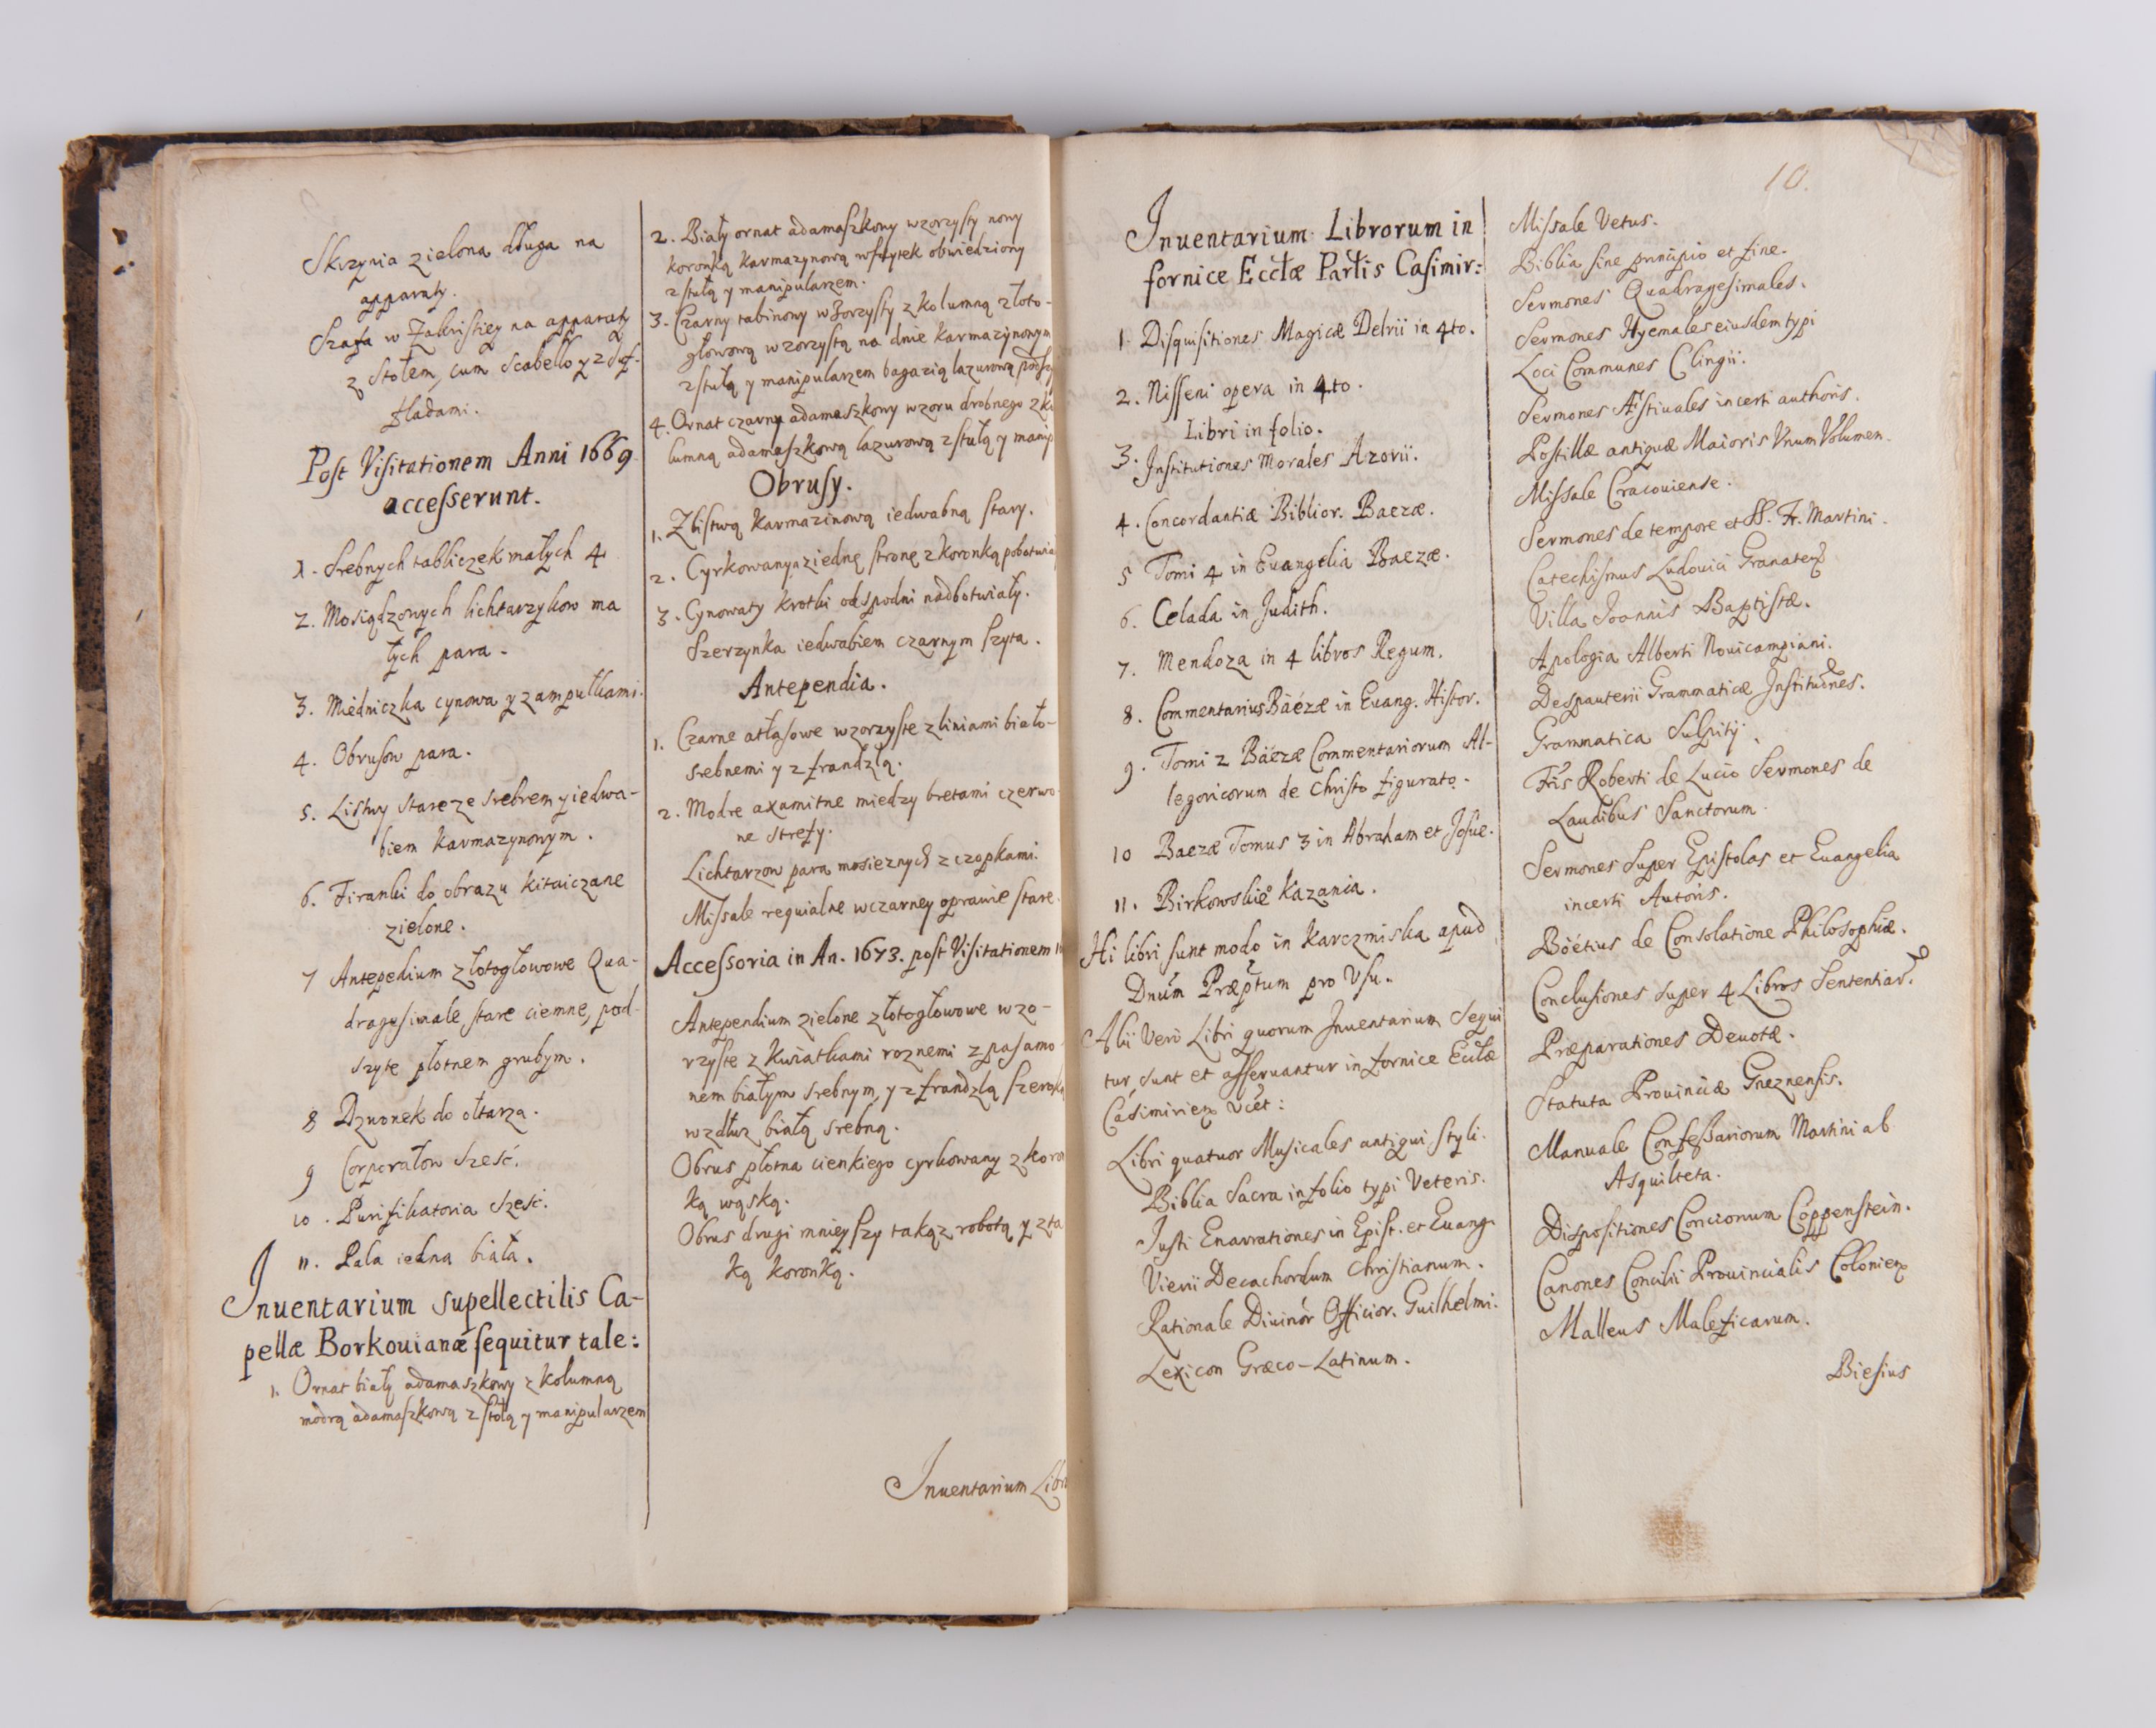 Skrzynia zielona długa na
apparaty.
Szafa w Zakristiey na apparaty
z stołem, cum scabello y z szuf-
fladami.
Post Visitationem Anni 1669
accesserunt.
1. Srebnych tabliczek małych 4
2. Mosiądzonych lichtarzykow ma
łych para.
3. Miedniczka cynowa y z ampułkami.
4. Obrusow para.
5. Listwy stare ze srebrem y iedwa-
biem karmazynowym.
6. Firanki do obrazu kitaiczane
zielone.
7 Antepedium złotogłowowe Qua-
dragesimale stare ciemne, pod-
szyte płotnem grubym.
8 Dzwonek do ołtarza.
9 Corporałow sześć.
10. Purifikatoria sześć.
11. Pala iedna biała.
Inuentarium supellectilis Ca-
pellæ Borkouianæ sequitur tale:
1. Ornat biały adamaszkowy z kolumną
modrą adamaszkową z stołą y manipularzem
2. Biały ornat adamaszkowy wzorzysty nowy
koronką karmazynową wszytek obwiedziony
z stułą y manipularzem.
3. Czarny tabinowy wzorzysty z kolumną złoto-
głowową wzorzystą na dnie karmazinowym
z stułą y manipularzem bagazią lazurową
4. Ornat czarny adamaszkowy wzoru drobnego z ko
lumną adamaszkową lazurową z stułą y manip
Obrusy.
1. Z listwą karmazinową iedwabną stary.
2. Cyrkowany z iednę stronę z koronką
3. Cynowaty krotki odspodni nadbotwiały.
Szerzynka iedwabiem czarnym szyta.
Antependia.
1. Czarne atłasowe wzorzyste z liniami biało-
srebnemi y z frandzlą.
2. Modre axamitne miedzy bretami czerwo
ne strefy.
Lichtarzow para mosieznych z czopkami.
Missale requialne w czarney oprawie stare.
Accessoria in An. 1673. post Visitationem
Antependium zielone złotogłowowe wzo-
rzyste z kwiatkami roznemi z pasamo
nem białym srebnym, y z frandzlą szeroką
wzdłuz białą srebną.
Obrus płotna cienkiego cyrkowany z koron
ką wąską.
Obrus drugi mnieyszy takąz robotą y z ta
ką koronką.
Inuentarium Libr
10.
Inuentarium Librorum in
fornice Ecctæ Partis Casimir:
1. Disquisitiones Magicæ Delrii in 4to.
2. Nisseni opera in 4to.
Libri in folio.
3. Institutiones Morales Azorii.
4. Concordantiæ Biblior. Baezæ.
5 Tomi 4 in Euangelia Baezæ.
6. Celada in Judith.
7. Mendoza in 4 libros Regum.
8. Commentarius Báézæ in Euang. Histor.
9. Tomi 2 Báezæ Commentariorum Al-
legoricorum de Christo figurato.
10 Baezæ Tomus 3 in Abraham et Josue.
11. Birkowskie° Kazania.
Hi libri sunt modo in Karczmiska apud
Dnúm Præptum pro Vsu.
Alii Verò Libri quorum Inuentarium Sequi
tur sunt et asseruantur in fornice Ecctæ
Casimirien Vcét:
Libri quatuor Musicales antiqui styli.
Biblia Sacra in folio typi Veteris.
Justi Enarrationes in Epist. et Euang.
Vierii Decachordum Christianum.
Rationale Diuinór Officior. Guilhelmi.
Lexicon Græco-Latinum.
Missale Vetus.
Biblia sine principio et fine.
Sermones Quadragesimales.
Sermones Hyemales eiusdem typi
Loci Communes Clingii.
Sermones Æstiuales incerti authoris.
Postillæ antiquæ Maioris Vnum Volumen.
Missale Cracouiense.
Sermones de tempore et SS. Fr. Martini.
Catechismus Ludouici Granaten
Villa Joannis Baptistæ.
Apologia Alberti Nouicampiani.
Despauterii Grammaticæ Institutnes.
Grammatica Sulpitij.
Fris Roberti de Lucio Sermones de
Laudibus Sanctorum.
Sermones Super Epistolas et Euangelia
incerti Autoris.
Böétius de Consolatione Philosophiæ.
Conclusiones super 4 Libros Sententiar.
Præparationes Deuotæ.
Statuta Prouinciæ Gneznensis.
Manuale Confessariorum Martini ab
Asquilteta.
Dispositiones Concionum Coppenstein.
Canones Concilii Prouincialis Colonien
Malleus Maleficarum.
Biesius